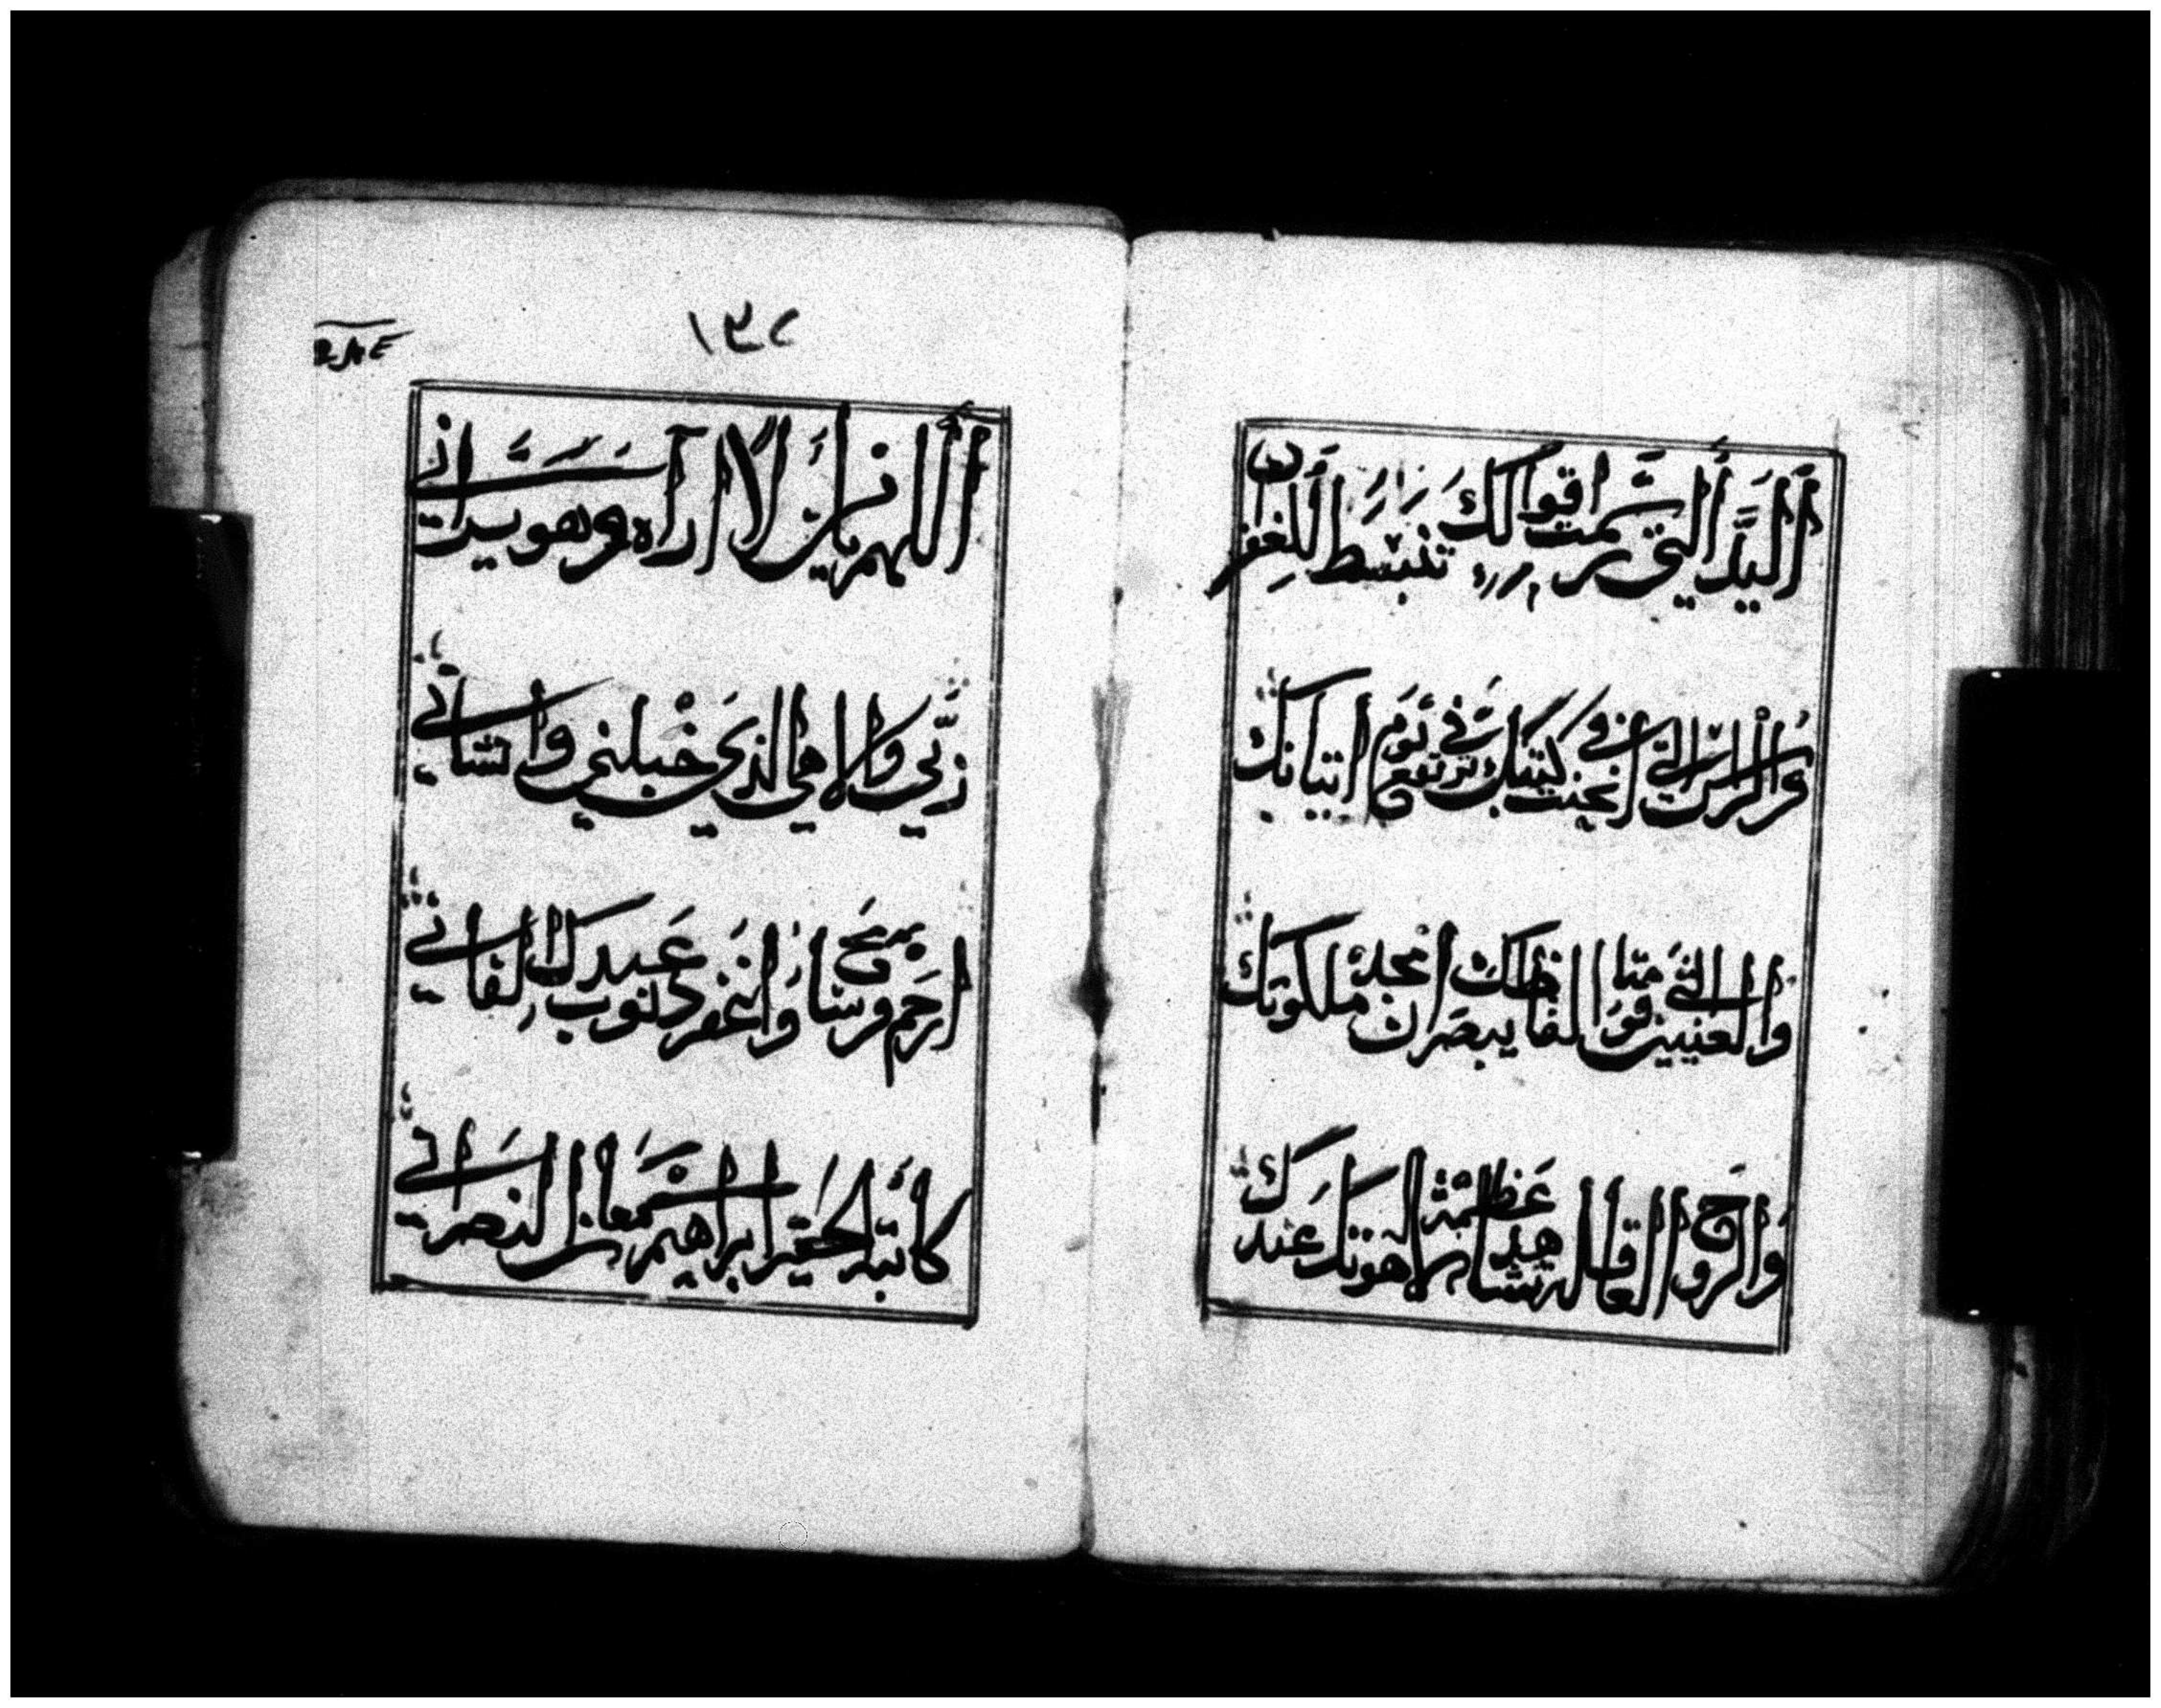 اليد التي رسمت اقوالك تنبسط للغفران
والراس التي انحنت في كتبك ترتفع في يوم اتيانك
والعينين التي الفاظك يبصران مجد ملكوتك
والروح العاقله تشاهد عظمة لاهوتك عندك
١٣٢
اللهم يا من لا اراه وهو يراني
ربي والاهي الذي جبلني وانشاني
ارحم وسامح وانغفر دنوب عبدك الفاني
كاتبه الحقير ابراهيم سمعان النصراني